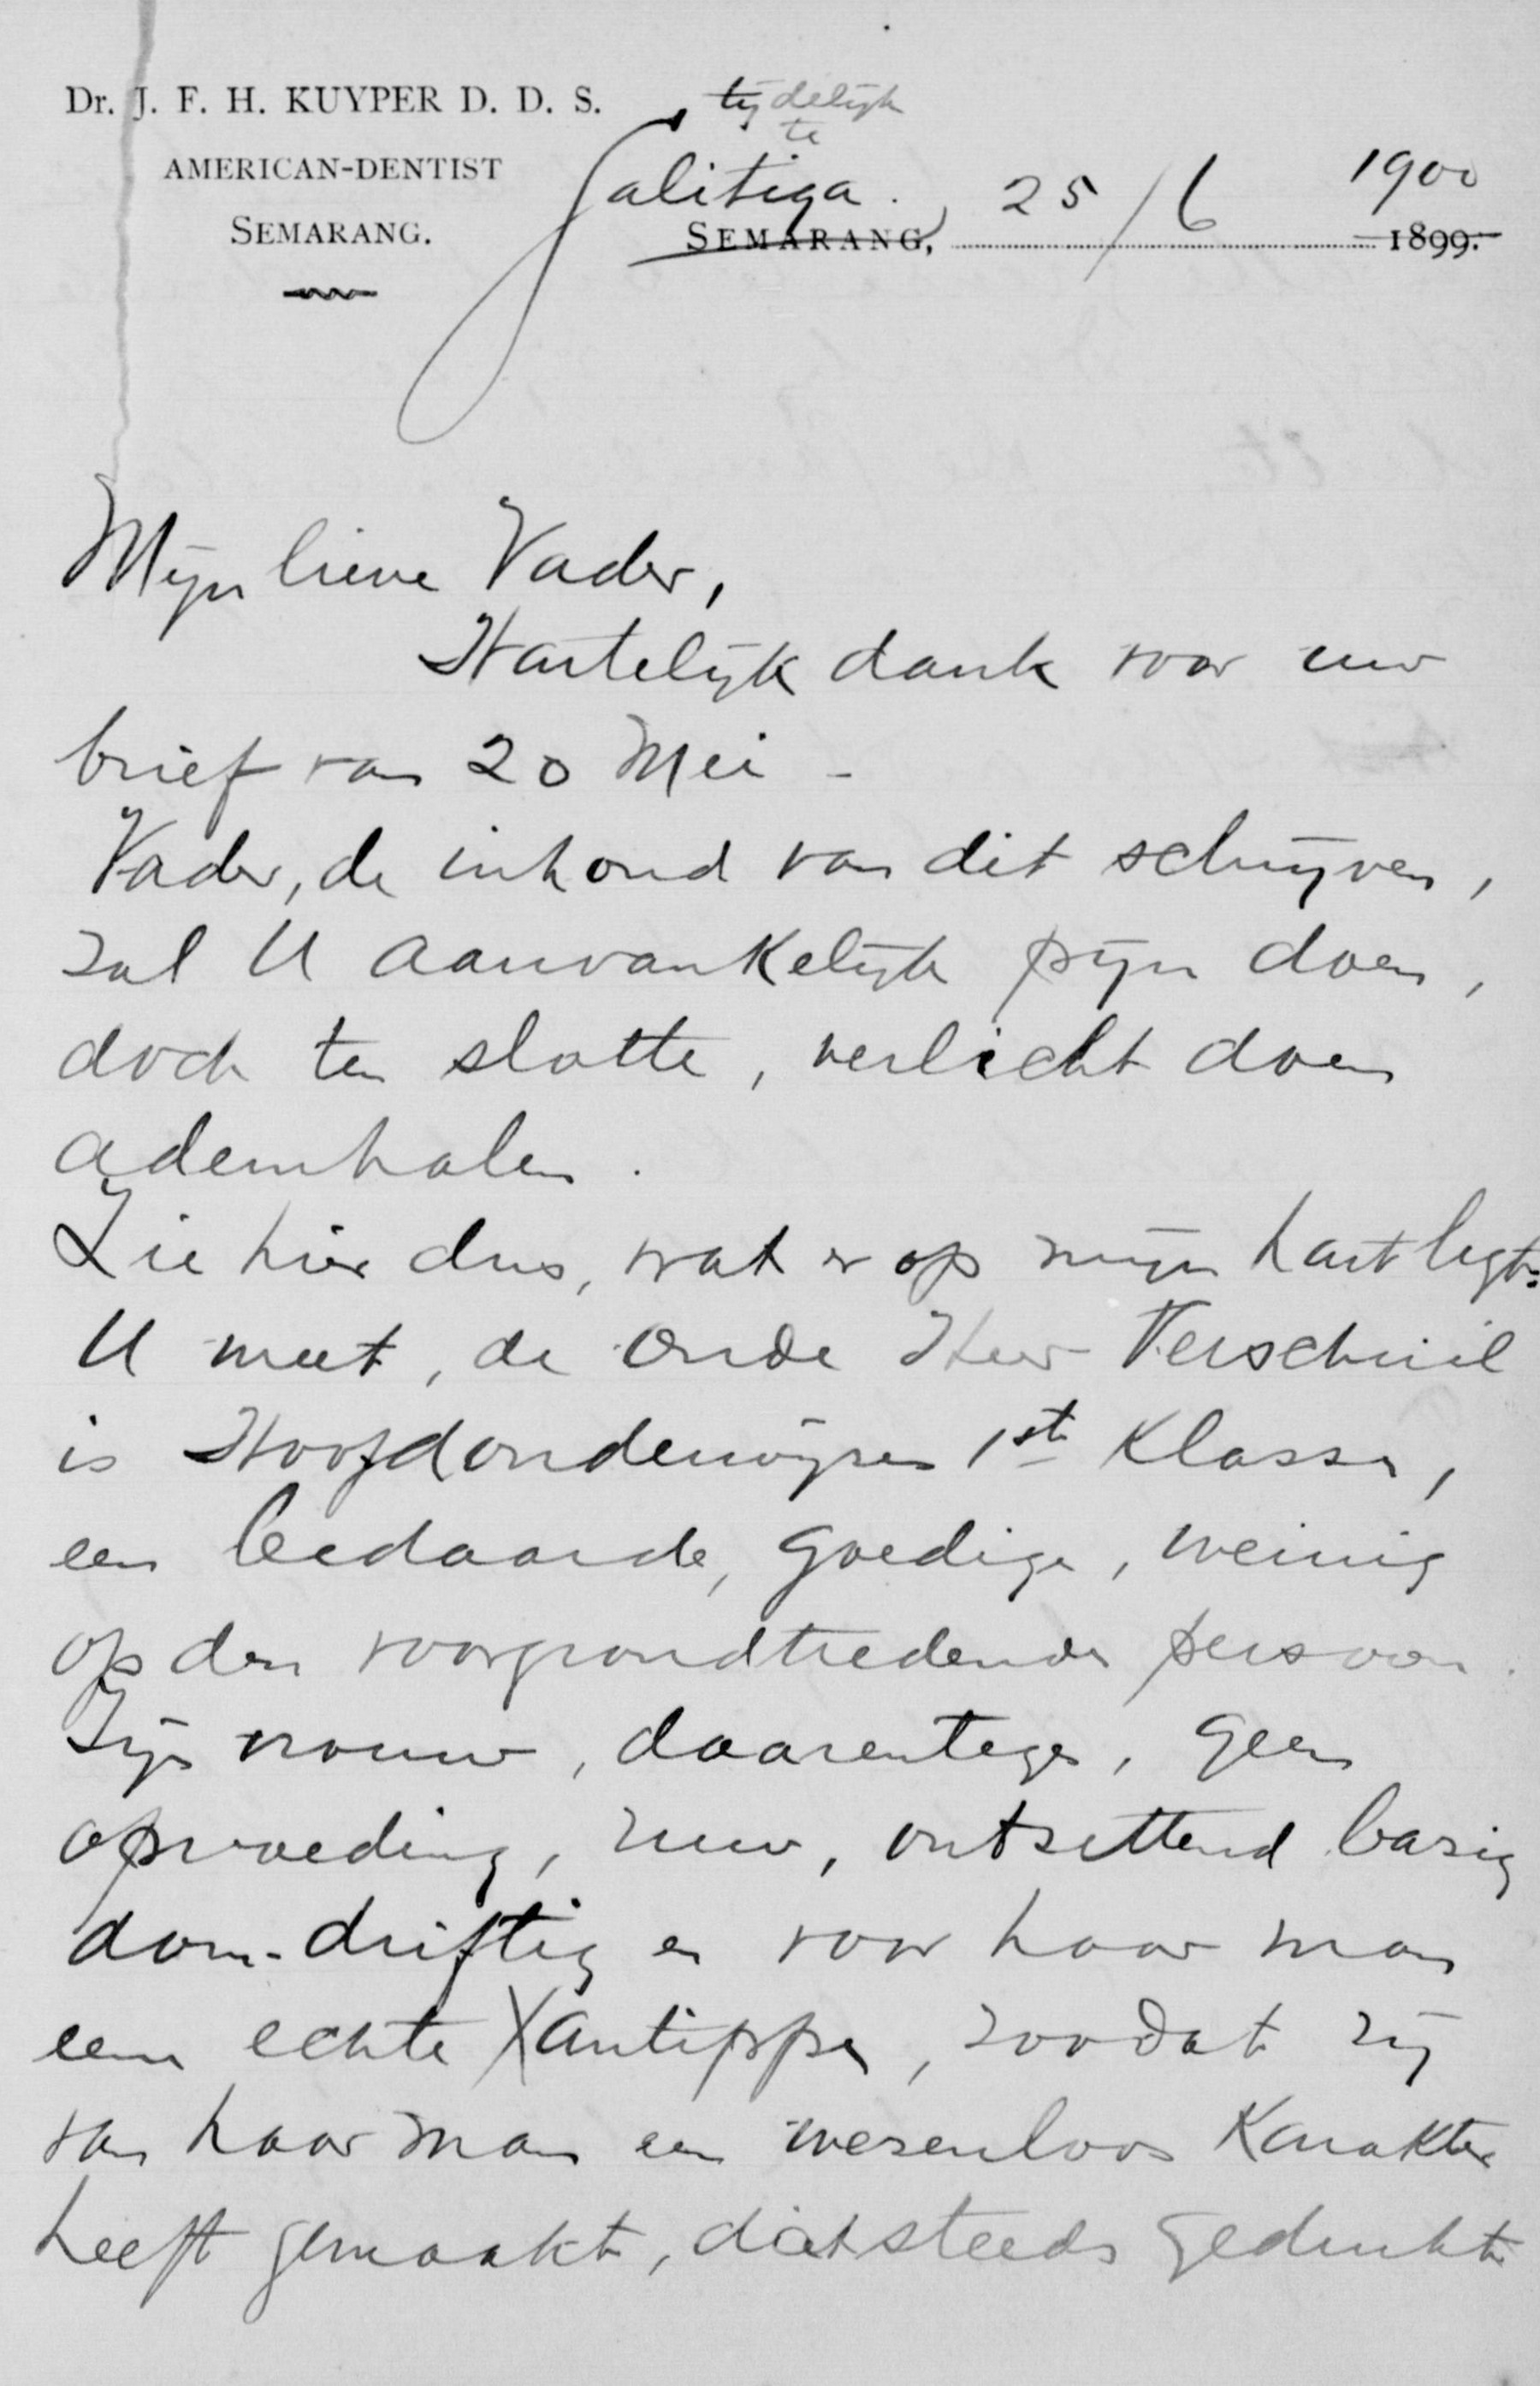 Dr. J. F. H. KUYPER D. D. S.
AMERICAN-DENTIST
SEMARANG.
tijdelijk
te
Salitiga.
SEMARANG, 25/6 1900
1899.
Mijn lieve Vader,
Hartelijk dank voor uw
brief van 20 Mei -
Vader, de inhoud van dit schrijven,
zal U aanvankelijk pijn doen,
doch ten slotte, verlicht doen
ademhalen.
Zie hier dus, wat er op mijn hart ligt:
U weet, de Oude Heer Verschuil
is Hoofdonderwijzer 1ste Klasse,
een bedaarde, goedige, weinig
op den voorgrondtredende persoon.
Zijn vrouw, daarentegen, geen
opvoeding, ruw, ontzettend bazig
dom-driftig en voor haar man
een echte Xantippe, zoodat zij
van haar man een wezenloos Karakter
heeft gemaakt, dat steeds gedrukt